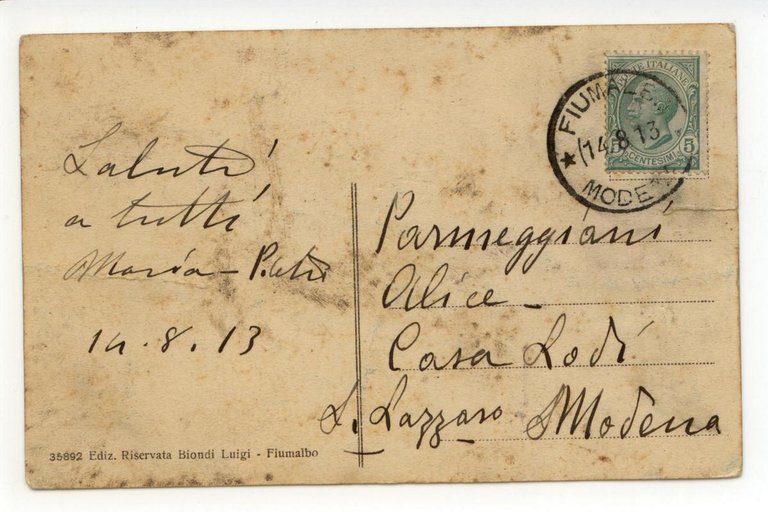 Saluti
a tutti
Maria - Pietro
14.8.13
POSTE ITALIANE
5
CENTESIMI
FIUMALBO
14.8.13
MODENA
Parmeggiani
Alice -
Casa Lodi
S. Lazzaro Modena
35892 Ediz. Riservata Biondi Luigi - Fiumalbo